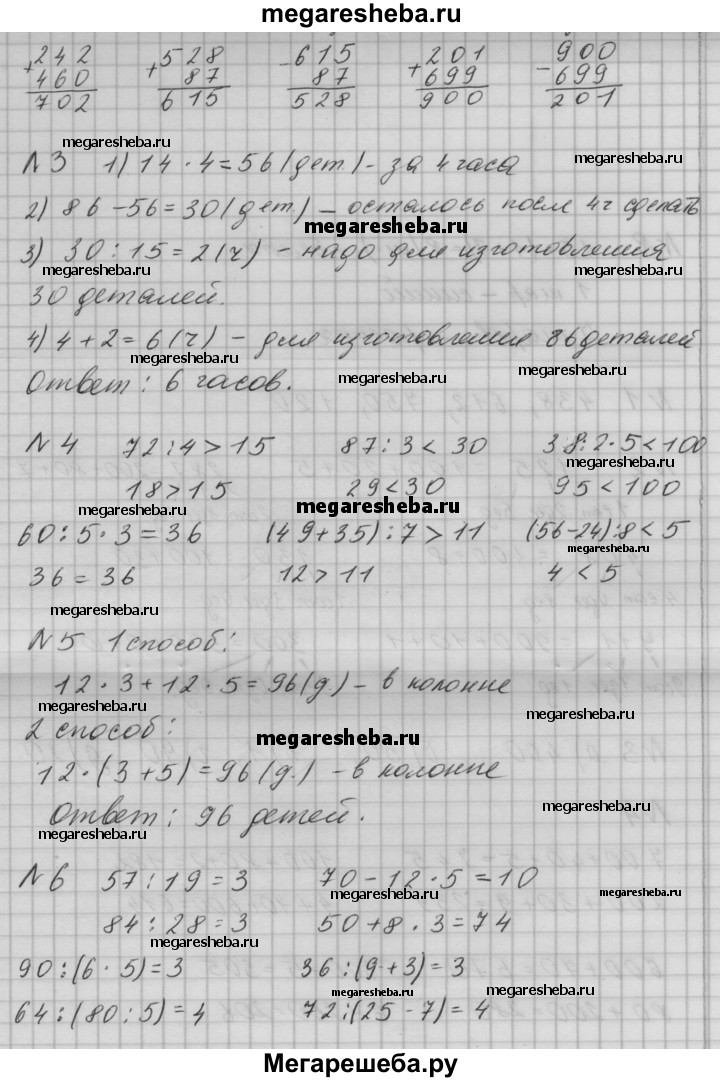 megaresheba.ru
242 528 615 201 900
+460 + 87 - 87 +699 -699
702 615 528 900 201
megaresheba.ru megaresheba.ru
N3 1) 14 · 4 = 56 (дет.) - за 4 часа
2) 86 - 56 = 30 (дет.) - осталось после 4ч сделать
megaresheba.ru
3) 30 : 15 = 2 (ч) - надо для изготовления
megaresheba.ru megaresheba.ru
30 деталей.
4) 4 + 2 = 6 (ч) - для изготовления 86 деталей
megaresheba.ru
Ответ: 6 часов.
megaresheba.ru megaresheba.ru
N4 72 : 4 > 15 87 : 3 < 30 38 : 2 · 5 < 100
megaresheba.ru
18 > 15 29 < 30 95 < 100
megaresheba.ru megaresheba.ru
60 : 5 · 3 = 36 (49 + 35) : 7 > 11 (56 - 24) : 8 < 5
megaresheba.ru
36 = 36 12 > 11 4 < 5
megaresheba.ru
N5 1 способ:
12 · 3 + 12 · 5 = 96 (д.) - в колонне
megaresheba.ru megaresheba.ru
2 способ:
megaresheba.ru
12 · (3 + 5) = 96 (д.) - в колонне
Ответ: 96 детей.
megaresheba.ru megaresheba.ru
N6 57 : 19 = 3 70 - 12 · 5 = 10
megaresheba.ru megaresheba.ru
84 : 28 = 3 50 + 8 · 3 = 74
megaresheba.ru megaresheba.ru
90 : (6 · 5) = 3 36 : (9 + 3) = 3
megaresheba.ru
64 : (80 : 5) = 4 72 : (25 - 7) = 4
megaresheba.ru megaresheba.ru
Мегарешеба.ру